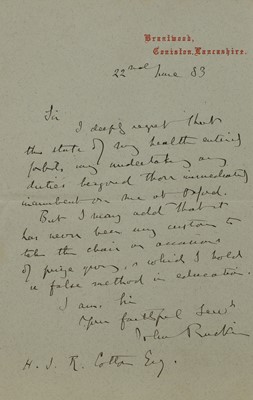 Brantwood,
Coniston, Lancashire.
22nd June 83
Sir
I deeply regret that
the state of my health entirely
forbids my undertaking any
duties beyond those immediately
incumbent on me at Oxford.
But I may add that it
has never been my custom to
take the chair on occasions
of prize giving, which I hold
a false method in education.
I am Sir
Your faithful Servt
John Ruskin
H. J. R. Cotton Esq.